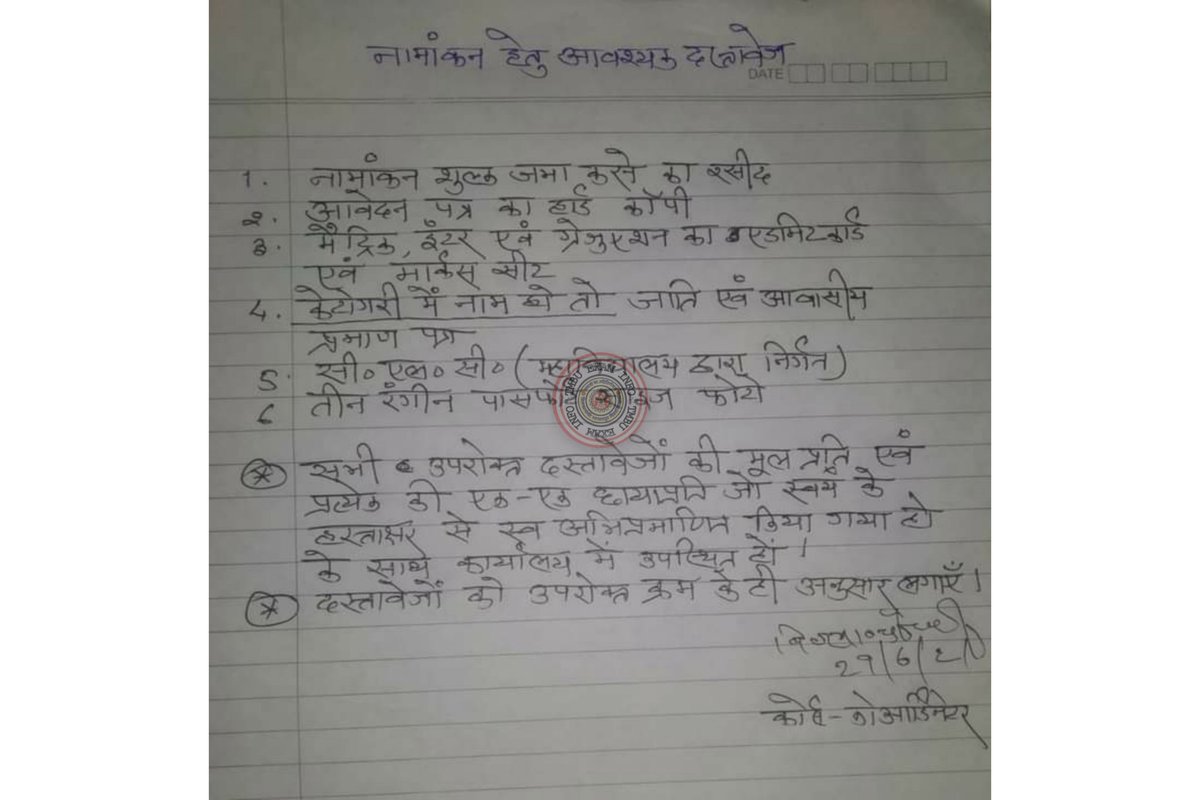 नामांकन हेतु आवश्यक दस्तावेज
DATE
1. नामांकन शुल्क जमा करने का रसीद
2. आवेदन पत्र का हार्ड कॉपी
3. मैट्रिक, इंटर एवं ग्रेजुएशन का एडमिटकार्ड
एवं मार्कस सीट
4. केटोगरी में नाम हो तो जाति एवं आवासीय
प्रमाण पत्र
5. सी० एल० सी० (महाविद्यालय द्वारा निर्गत)
6 तीन रंगीन पासपोर्ट साइज फोटो
* सभी उपरोक्त दस्तावेजों की मूल प्रति एवं
प्रत्येक की एक-एक छायाप्रति जो स्वयं के
हस्ताक्षर से स्व अभिप्रमाणित किया गया हो
के साथ कार्यालय में उपस्थित हों।
* दस्तावेजों को उपरोक्त क्रम के ही अनुसार लगाएँ।
29/6/21
कोर्स-कोआर्डिनेटर
TMBU EXAM INFO